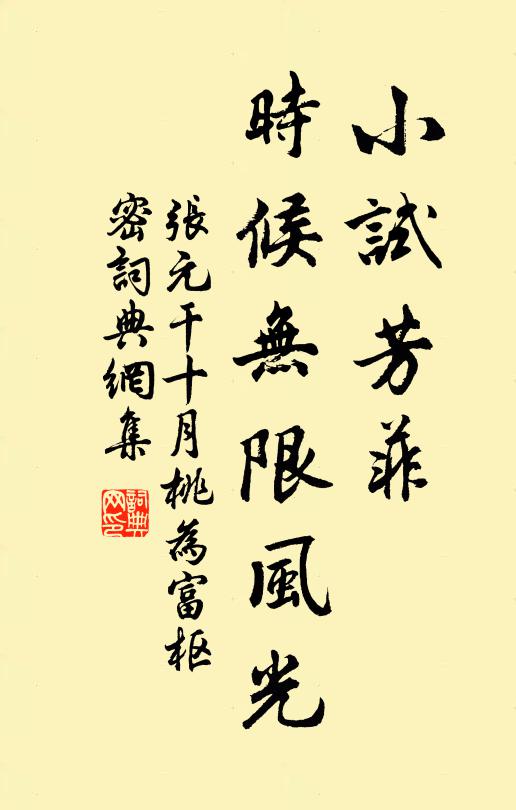 小試芳菲
時候無限風光
張元干十月桃為富枢
密詞典網集
詞典
网印